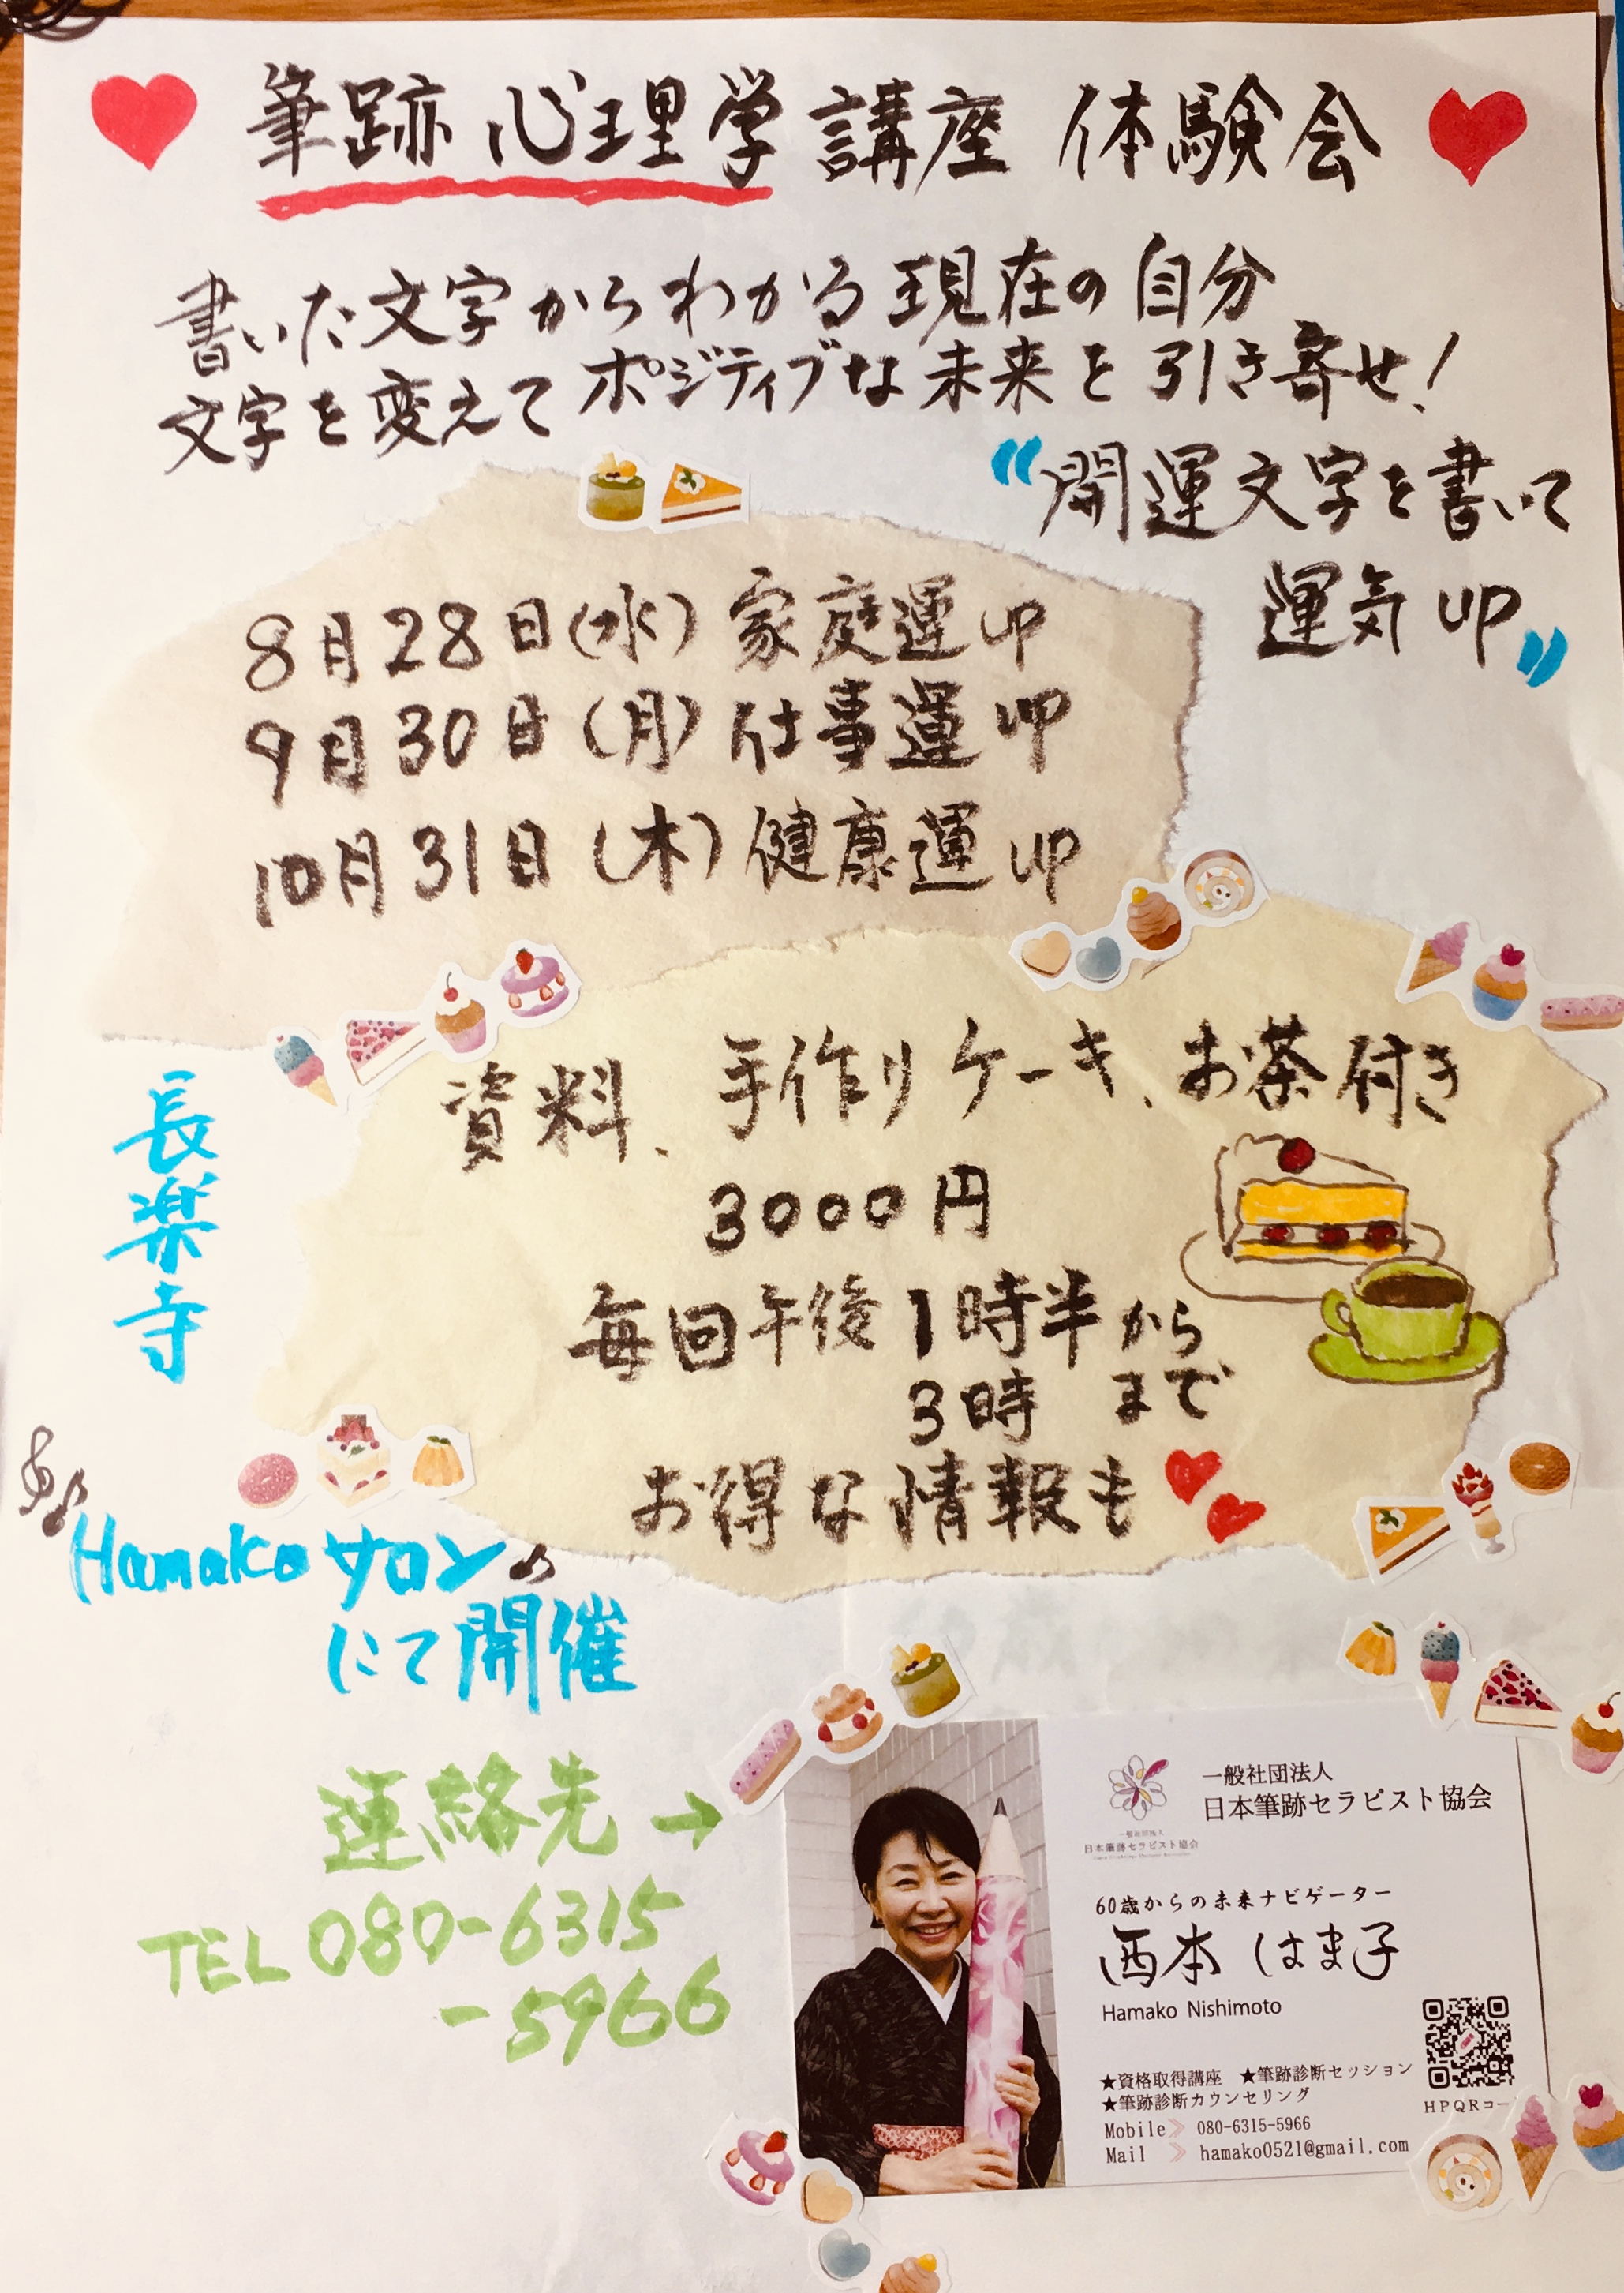 筆跡心理学講座 体験会
書いた文字からわかる現在の自分
文字を変えてポジティブな未来を引き寄せ!
“開運文字を書いて
運気up”
8月28日(水)家庭運up
9月30日(月)仕事運up
10月31日(木)健康運up
資料、手作りケーキ、お茶付き
3000円
毎回午後1時半から
3時まで
お得な情報も
長楽寺
Hamakoサロン
にて開催
連絡先→
TEL 080-6315
-5966
一般社団法人
日本筆跡セラピスト協会
一般社団法人
日本筆跡セラピスト協会
60歳からの未来ナビゲーター
西本 はま子
Hamako Nishimoto
★資格取得講座 ★筆跡診断セッション
★筆跡診断カウンセリング
HPQRコー
Mobile》 080-6315-5966
Mail 》 hamako0521@gmail.com